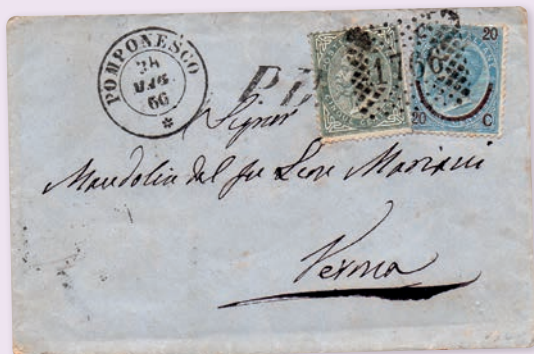 POMPONESCO
24
MAR
66
P.D.
1766
20
20 C
Signor
Mandolin del fu Leon Mariani
Verona